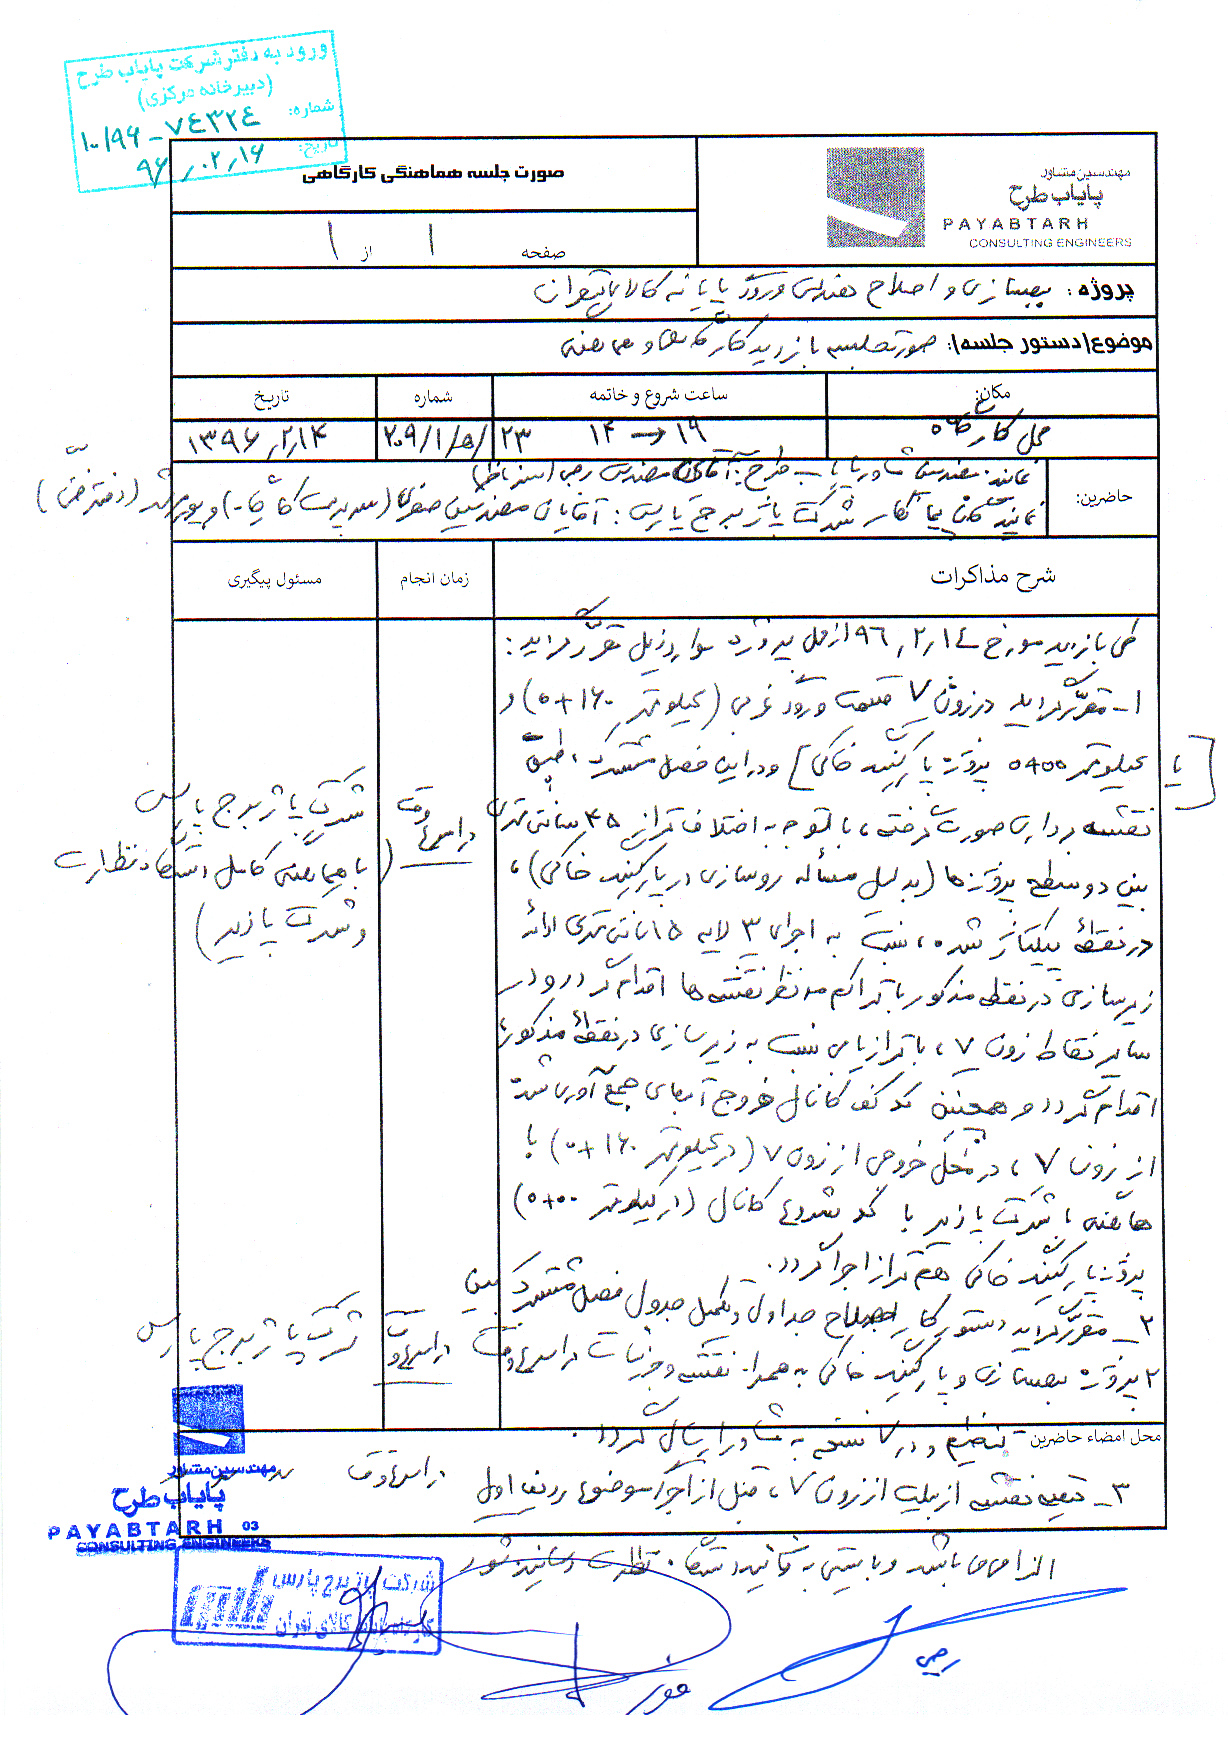 ورود به دفتر شرکت پایاب طرح
(دبیرخانه مرکزی)
شماره: ۱۰/۹۶-۷۴۳۲۴
تاریخ: ۹۶,۰۲,۱۶
صورت جلسه هماهنگی کارگاهی
صفحه ۱ از ۱
مهندسین مشاور
پایاب طرح
PAYABTARH
CONSULTING ENGINEERS
پروژه: بهسازی و اصلاح هندسی ورودی پایانه کالای تهران
موضوع/دستور جلسه/: صورتجلسه بازدید کارگاهی و
مکان:
ساعت شروع و خاتمه
شماره
تاریخ
محل کارگاه
۱۴ → ۱۹
۲۰۹/۱/ه/۲۳
۱۳۹۶,۲,۱۴
حاضرین:
نماینده مهندسین مشاور پایاب طرح: آقای مهندس رجبی
نمایندگان پیمانکار شرکت پاژ برج پارس: آقایان مهندسین صفری (سرپرست کارگاه) و (دفتر فنی)
شرح مذاکرات
زمان انجام
مسئول پیگیری
طی بازدید مورخ ۹۶,۲,۱۴ از محل پروژه موارد ذیل مقرر گردید:
۱- مقرر گردید در زون ۷ قسمت ورودی غربی (کیلومتر ۰+۱۶۰) و
یا کیلومتر ۰+۰۰۰ پروژه پارکینگ خاکی] و در این فصل مشترک، طبق
نقشه برداری صورت گرفته، با توجه به اختلاف تراز ۴۵ سانتی متری
بین دو سطح پروژه ها (بدلیل مسأله روسازی در پارکینگ خاکی)،
در نقطه شده، نسبت به اجرای ۳ لایه ۱۵ سانتی متری
زیرسازی در نقطه مذکور با تراکم مدنظر نقشه ها اقدام گردد و در
سایر نقاط زون ۷، با ترازیابی نسبت به زیرسازی در نقطه مذکور،
اقدام گردد و همچنین کد کف کانال خروج آبهای جمع آوری شده
از زون ۷، در محل خروجی از زون ۷ (در کیلومتر ۰+۱۶۰) با
با شرکت پاژیر با کد شروع کانال (در کیلومتر ۰+۰۰۰)
پروژه پارکینگ خاکی هم تراز اجرا گردد.
در اسرع وقت
شرکت پاژ برج پارس
(با هماهنگی کامل دستگاه نظارت
و شرکت پاژیر)
۲- مقرر گردید دستور کار اصلاح جداول و تکمیل جدول فصل مشترک بین
۲ پروژه بهسازی و پارکینگ خاکی به همراه نقشه و جزئیات در اسرع وقت
در اسرع وقت
شرکت پاژ برج پارس
محل امضاء حاضرین
تنظیم و در نتیجه به مشاور ارسال گردد.
۳- تهیه نقشه ازبیلت از زون ۷، قبل از اجرا موضوع ردیف اول در اسرع وقت
الزامی می باشد و بایستی به تائید دستگاه نظارت رسانیده شود
مهندسین مشاور
پایاب طرح
PAYABTARH 03
CONSULTING ENGINEERS
شرکت پاژ برج پارس
کارگاه پایانه کالای تهران
رجبی